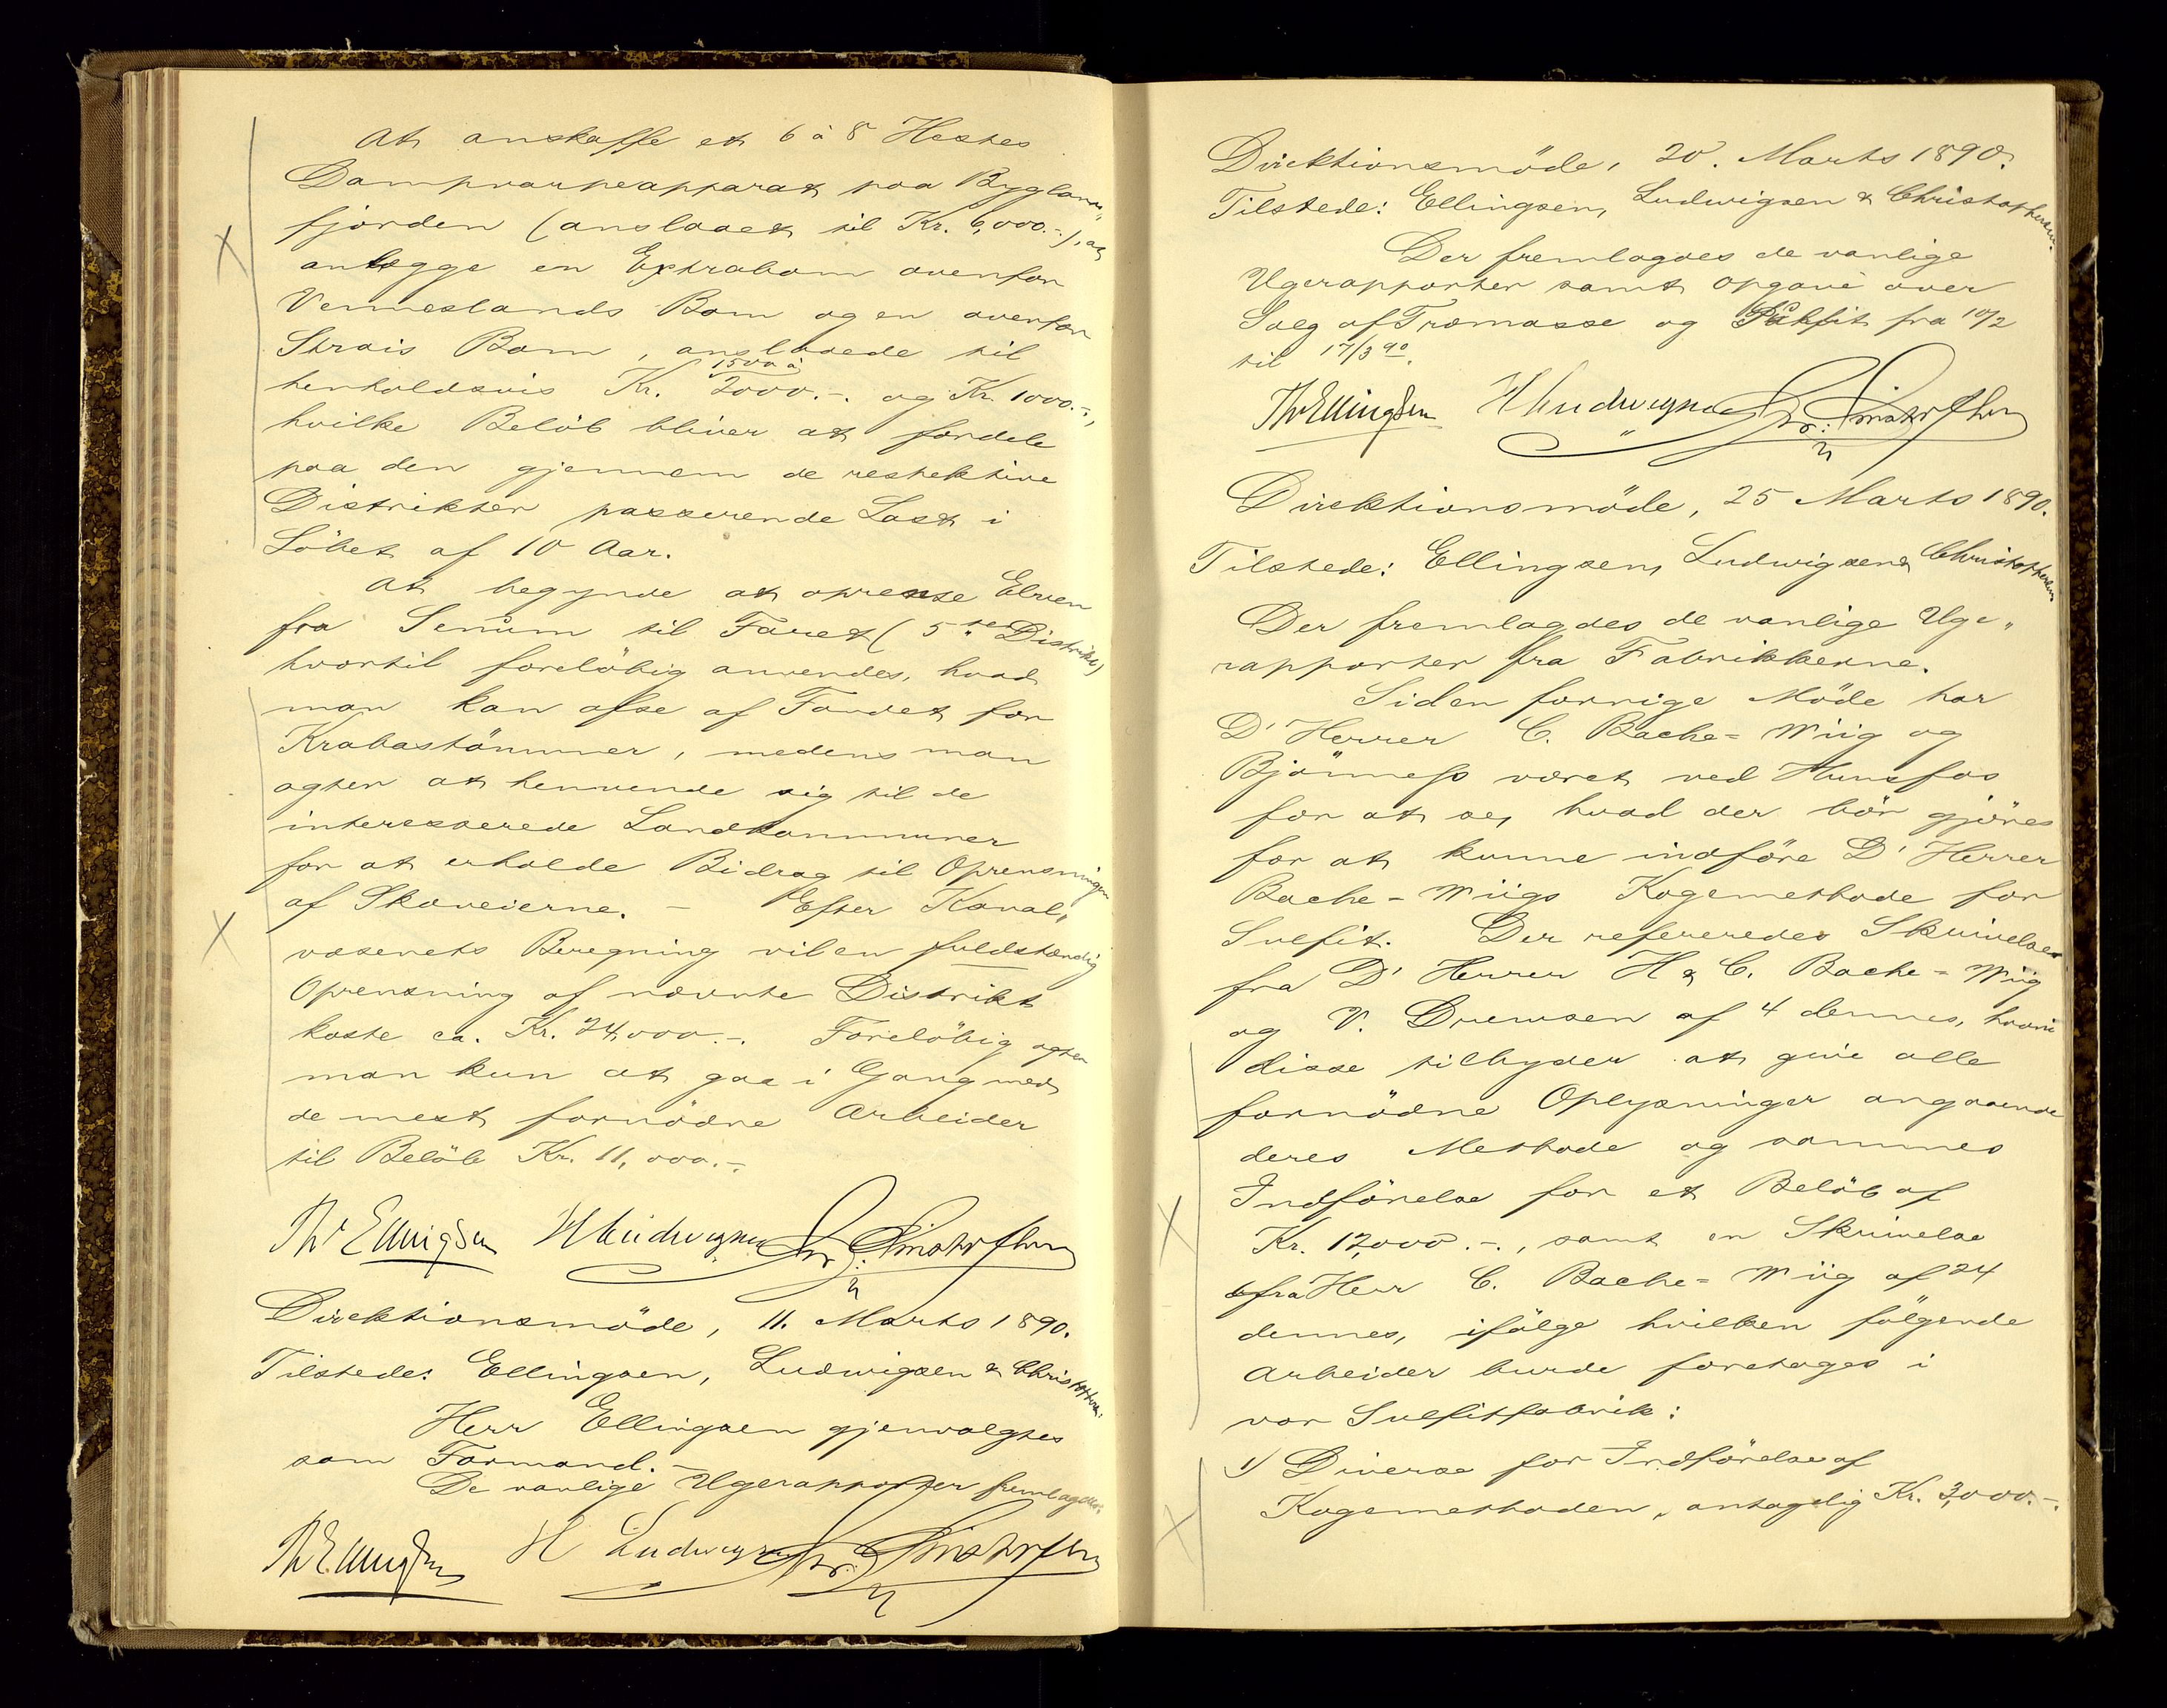 At anskaffe et 6 à 8 Hestes
Dampvarpeapparat paa Byglands„
fjorden (anslaaet til Kr. 6,000.-), at
anlægge en Extrabom ovenfor
Venneslands Bom og en ovenfor
Strais Bom, anslaaede til
1500 à
henholdsvis Kr. 2000.-. og Kr. 1000.-.,
hvilke Belöb bliver at fordele
paa den gjennem de respektive
Distrikter passerende Last i
Löbet af 10 Aar.
At begynde at oprense Elven
fra Senum til Faret (5te Distrikt)
hvortil foreløbig anvendes, hvad
man kan afse af Fondet for
Krabastömmer, medens man
agter at henvende sig til de
interesserede Landkommuner
for at erholde Bidrag til Oprensningen
af Skoveierne. - Efter Kanal„
væsenets Beregning vil en fuldstændig
Oprensning af nævnte Distrikt
koste ca. Kr. 24,000.-. Foreløbig agter
man kun at gaa i Gang med
de mest fornödne Arbeider
til Belöb Kr. 11,000.-.
Th Ellingsen H Ludwigsen Chr. Christophersen
Direktionsmöde, 11. Marts 1890.
Tilstede: Ellingsen, Ludwigsen & Christophersen.
Herr Ellingsen gjenvalgtes
som Formand. -
De vanlige Ugerapporter fremlagdes.
Th Ellingsen H Ludwigsen Chr. Christophersen
Direktionsmöde, 20. Marts 1890.
Tilstede: Ellingsen, Ludwigsen & Christophersen.
Der fremlagdes de vanlige
Ugerapporter samt Opgave over
Salg af Træmasse og Sulfit fra 10/2
til 17/3 90.
Th Ellingsen H Ludwigsen Chr. Christophersen
Direktionsmöde, 25 Marts 1890.
Tilstede: Ellingsen, Ludwigsen & Christophersen
Der fremlagdes de vanlige Uge„
rapporter fra Fabrikkerne.
Siden forrige Möde har
D' Herrer C. Bache=Wiig og
Bjönness været ved Hunsfos
for at se, hvad der bör gjöres
for at kunne indföre D' Herrer
Bache-Wiigs Kogemethode for
Sulfit. Der refereredes Skrivelser
fra D' Herrer H & C. Bache=Wiig
og V. Drewsen af 4 dennes, hvori
disse tilbyder at give alle
fornödne Oplysninger angaaende
deres Methode og sammes
Indförelse for et Belöb af
Kr. 12,000.-., samt en Skrivelse
fra Herr C. Bache=Wiig af 24
dennes, ifölge hvilken fölgende
Arbeider burde foretages i
vor Sulfitfabrik:
1) Diverse for Indförelse af
Kogemethoden, antagelig Kr. 3,000.-.